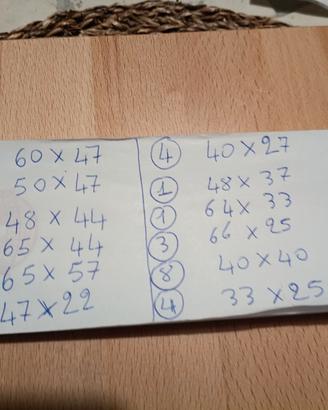 60 x 47 ④ 40 x 27
50 x 47 ① 48 x 37
48 x 44 ① 64 x 33
65 x 44 ③ 66 x 25
65 x 57 ⑧ 40 x 40
47 x 22 ④ 33 x 25